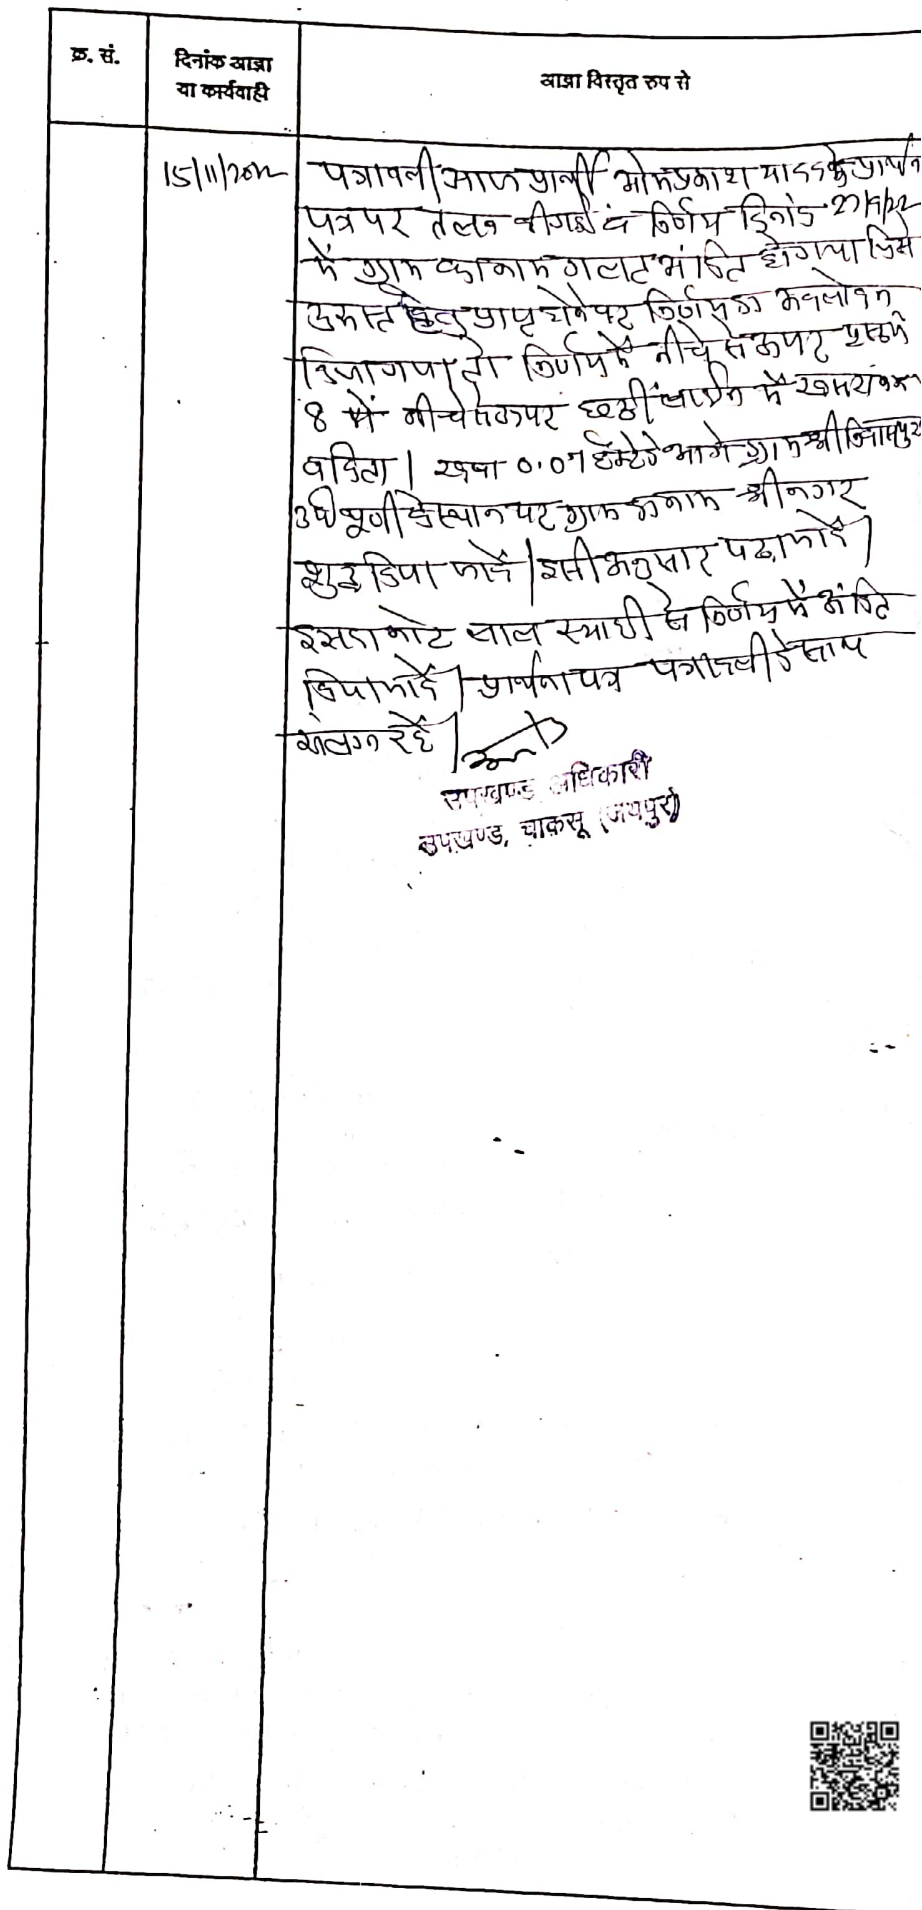 क्र. सं.
दिनांक आज्ञा
या कार्यवाही
आज्ञा विस्तृत रुप से
15/11/2022 पत्रावली आज प्रार्थी ओमप्रकाश यादव के प्रार्थना
पत्र पर तलब की गई व निर्णय दिनांक
में ग्राम का नाम गलत अंकित हो गया जिसे
दुरूस्त हेतु प्राप्त होने पर निर्णय का अवलोकन
किया गया तो निर्णय में नीचे से ऊपर
8 में नीचे से ऊपर छठी लाईन में
रकबा 0.07 है० के आगे ग्राम
के स्थान पर ग्राम का नाम श्रीनगर
शुद्ध किया जावें | इसी अनुसार पढा जावें |
इसका नोट लाल स्याही से निर्णय में अंकित
किया जावें | प्रार्थना पत्र पत्रावली के साथ
सलंग्न रहें |
उपखण्ड अधिकारी
उपखण्ड, चाकसू (जयपुर)